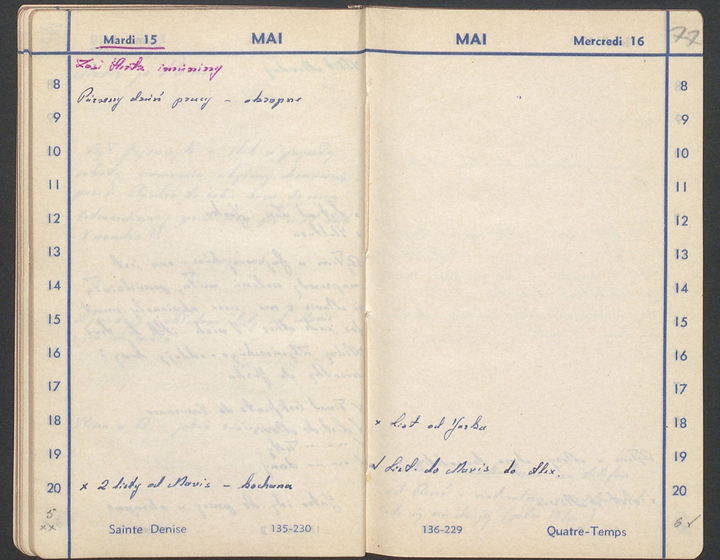 Mardi 15
MAI
Zosi imieniny
8
Pierwszy dzień pracy – okropne
9
10
11
12
13
14
15
16
17
18
19
20
x 2 listy od Maris – kochana
5
xx
Sainte Denise
135-230
MAI
Mercredi 16
77
8
9
10
11
12
13
14
15
16
17
18
x List od Jurka
19
√ List do Maris do Alex.
20
136-229
Quatre-Temps
6 √